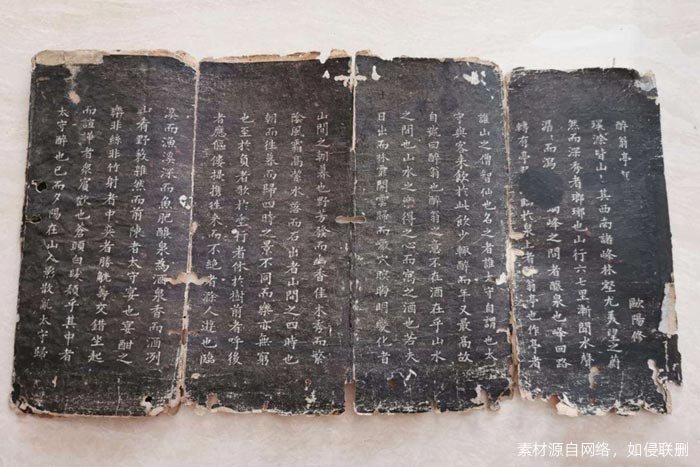 醉翁亭
歐陽修
環滁皆山 其西南諸峰林壑尤美望之蔚
然而深秀者瑯琊也山行六七里漸聞水聲
潺 而瀉 兩峰之間者釀泉也峰回路
轉有亭 臨於泉上者 翁亭也作亭者
誰山之僧智仙也名之者誰太守自謂也太
守與客來飲於此飲少輒醉而年又最高故
自號曰醉翁也醉翁之意不在酒在乎山水
之間也山水之樂得之心而寓之酒也若夫
日出而林霏開雲歸而巖穴暝晦明變化者
山間之朝暮也野芳發而幽香佳木秀而繁
陰風霜高潔水落而石出者山間之四時也
朝而往暮而歸四時之景不同而樂亦無窮
也至於負者歌於塗行者休於樹前者呼後
者應傴僂提攜往來而不絕者滁人遊也臨
溪而漁溪深而魚肥釀泉為酒泉香而酒洌
山肴野蔌雜然而前陳者太守宴也宴酣之
樂非絲非竹射者中奕者勝觥籌交錯坐起
而諠譁者眾賓歡也蒼顏白髮頹乎其中者
太守醉也已而夕陽在山人影散亂太守歸
素材源自网络，如侵联删